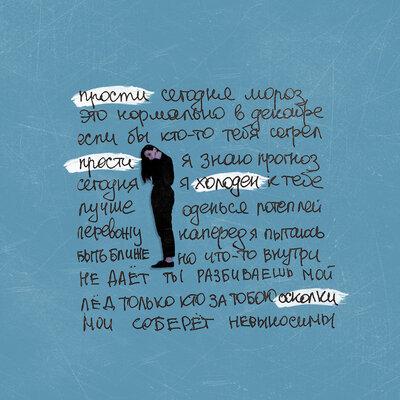 прости сегодня мороз
это нормально в декабре
если бы кто-то тебя согрел
прости я знаю прогноз
сегодня я холоден к тебе
лучше оденься потеплей
перевожу наперед я пытаюсь
быть ближе но что-то внутри
не даёт ты разбиваешь мой
лёд только кто за тобою осколки
мои соберёт невыносимы